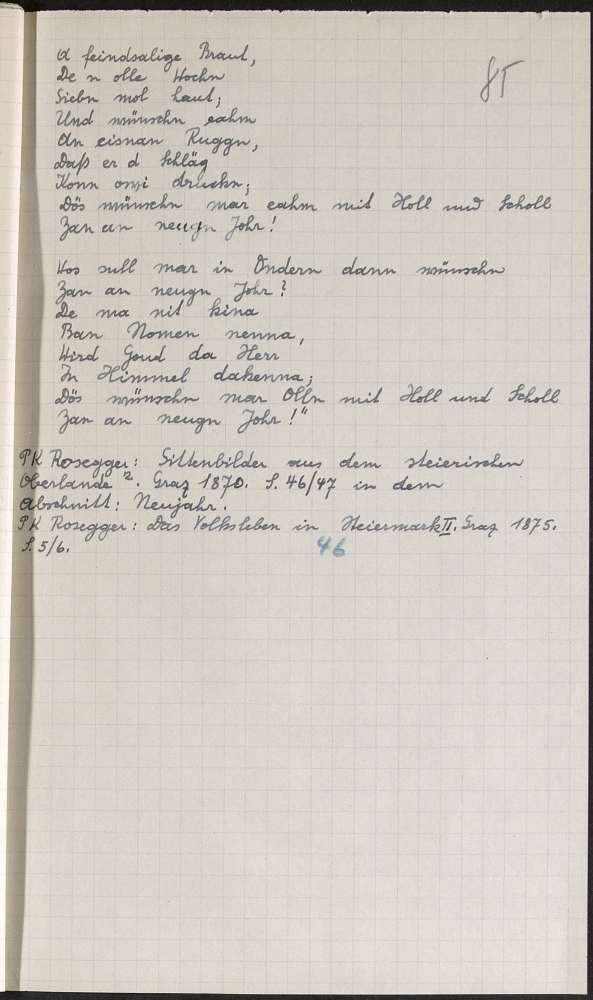 A feindsalige Braut,
85
De n olle Wochn
Siebn mol haut;
Und wünschn eahm
An eisnan Ruggn,
Daß er d Schläg
Konn owi druckn;
Dös wünschn mar eahm mit Holl und Scholl
Zan an neugn Johr!
Wos sull mar in Ondern dann wünschn
Zan an neugn Johr?
De ma nit kina
Ban Nomen nenna,
Wird Goud da Herr
In Himmel dakenna;
Dös wünschn mar Olln mit Holl und Scholl
Zan an neugn Johr!"
PK Rosegger: Sittenbilder aus dem steierischen
Oberlande". Graz 1870. S. 46/47 in dem
Abschnitt: Neujahr.
PK Rosegger: Das Volksleben in Steiermark II. Graz 1875.
S. 5/6.
46